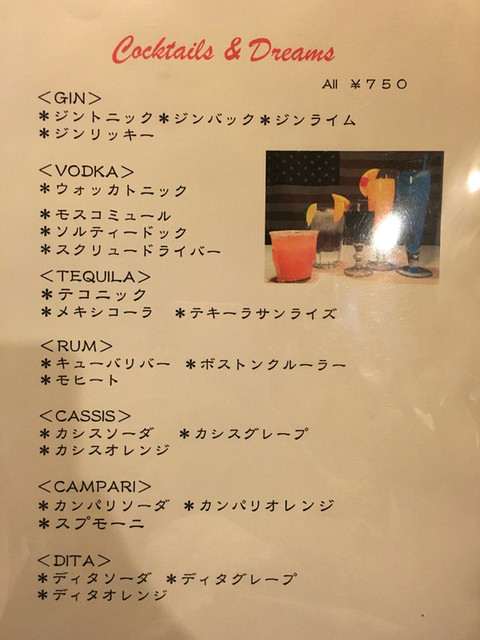 Cocktails & Dreams
All ￥750
＜GIN＞
＊ジントニック＊ジンバック＊ジンライム
＊ジンリッキー
＜VODKA＞
＊ウォッカトニック
＊モスコミュール
＊ソルティードック
＊スクリュードライバー
＜TEQUILA＞
＊テコニック
＊メキシコーラ ＊テキーラサンライズ
＜RUM＞
＊キューバリバー ＊ボストンクルーラー
＊モヒート
＜CASSIS＞
＊カシスソーダ ＊カシスグレープ
＊カシスオレンジ
＜CAMPARI＞
＊カンパリソーダ ＊カンパリオレンジ
＊スプモーニ
＜DITA＞
＊ディタソーダ ＊ディタグレープ
＊ディタオレンジ